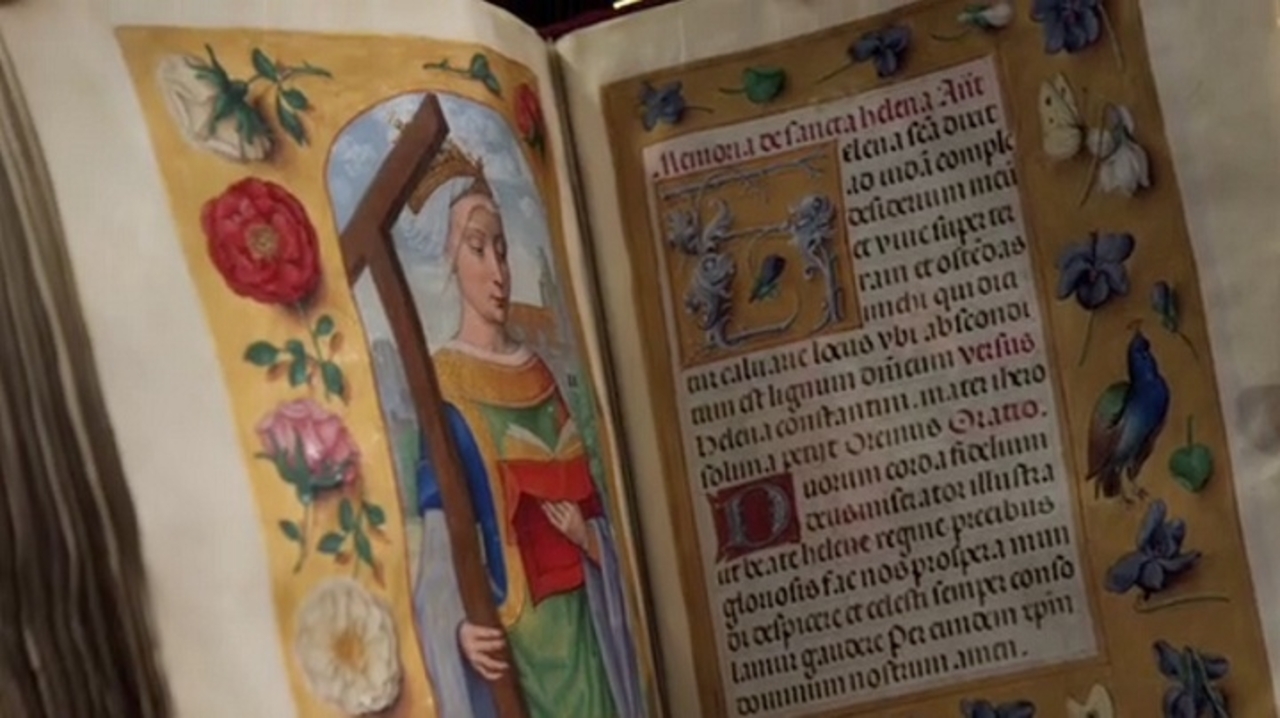 Memoria de sancta helena Añt
elena scã dixit
ad iudã comple
desiderium meū
et viue super ter
ram et ostēdas
michi qui dici
tur caluarie locus vbi abscondi
tum est lignum dñicum versus
helena constantini mater ihero
solima petijt Oremus Oratio.
D uorum corda fidelium
deus miserator illustra
ut beate helene regine precibus
gloriosis fac nos prospera mun
di despicere et celesti semper conso
lamur gaudere Per eundem xpm
dominum nostrum amen.